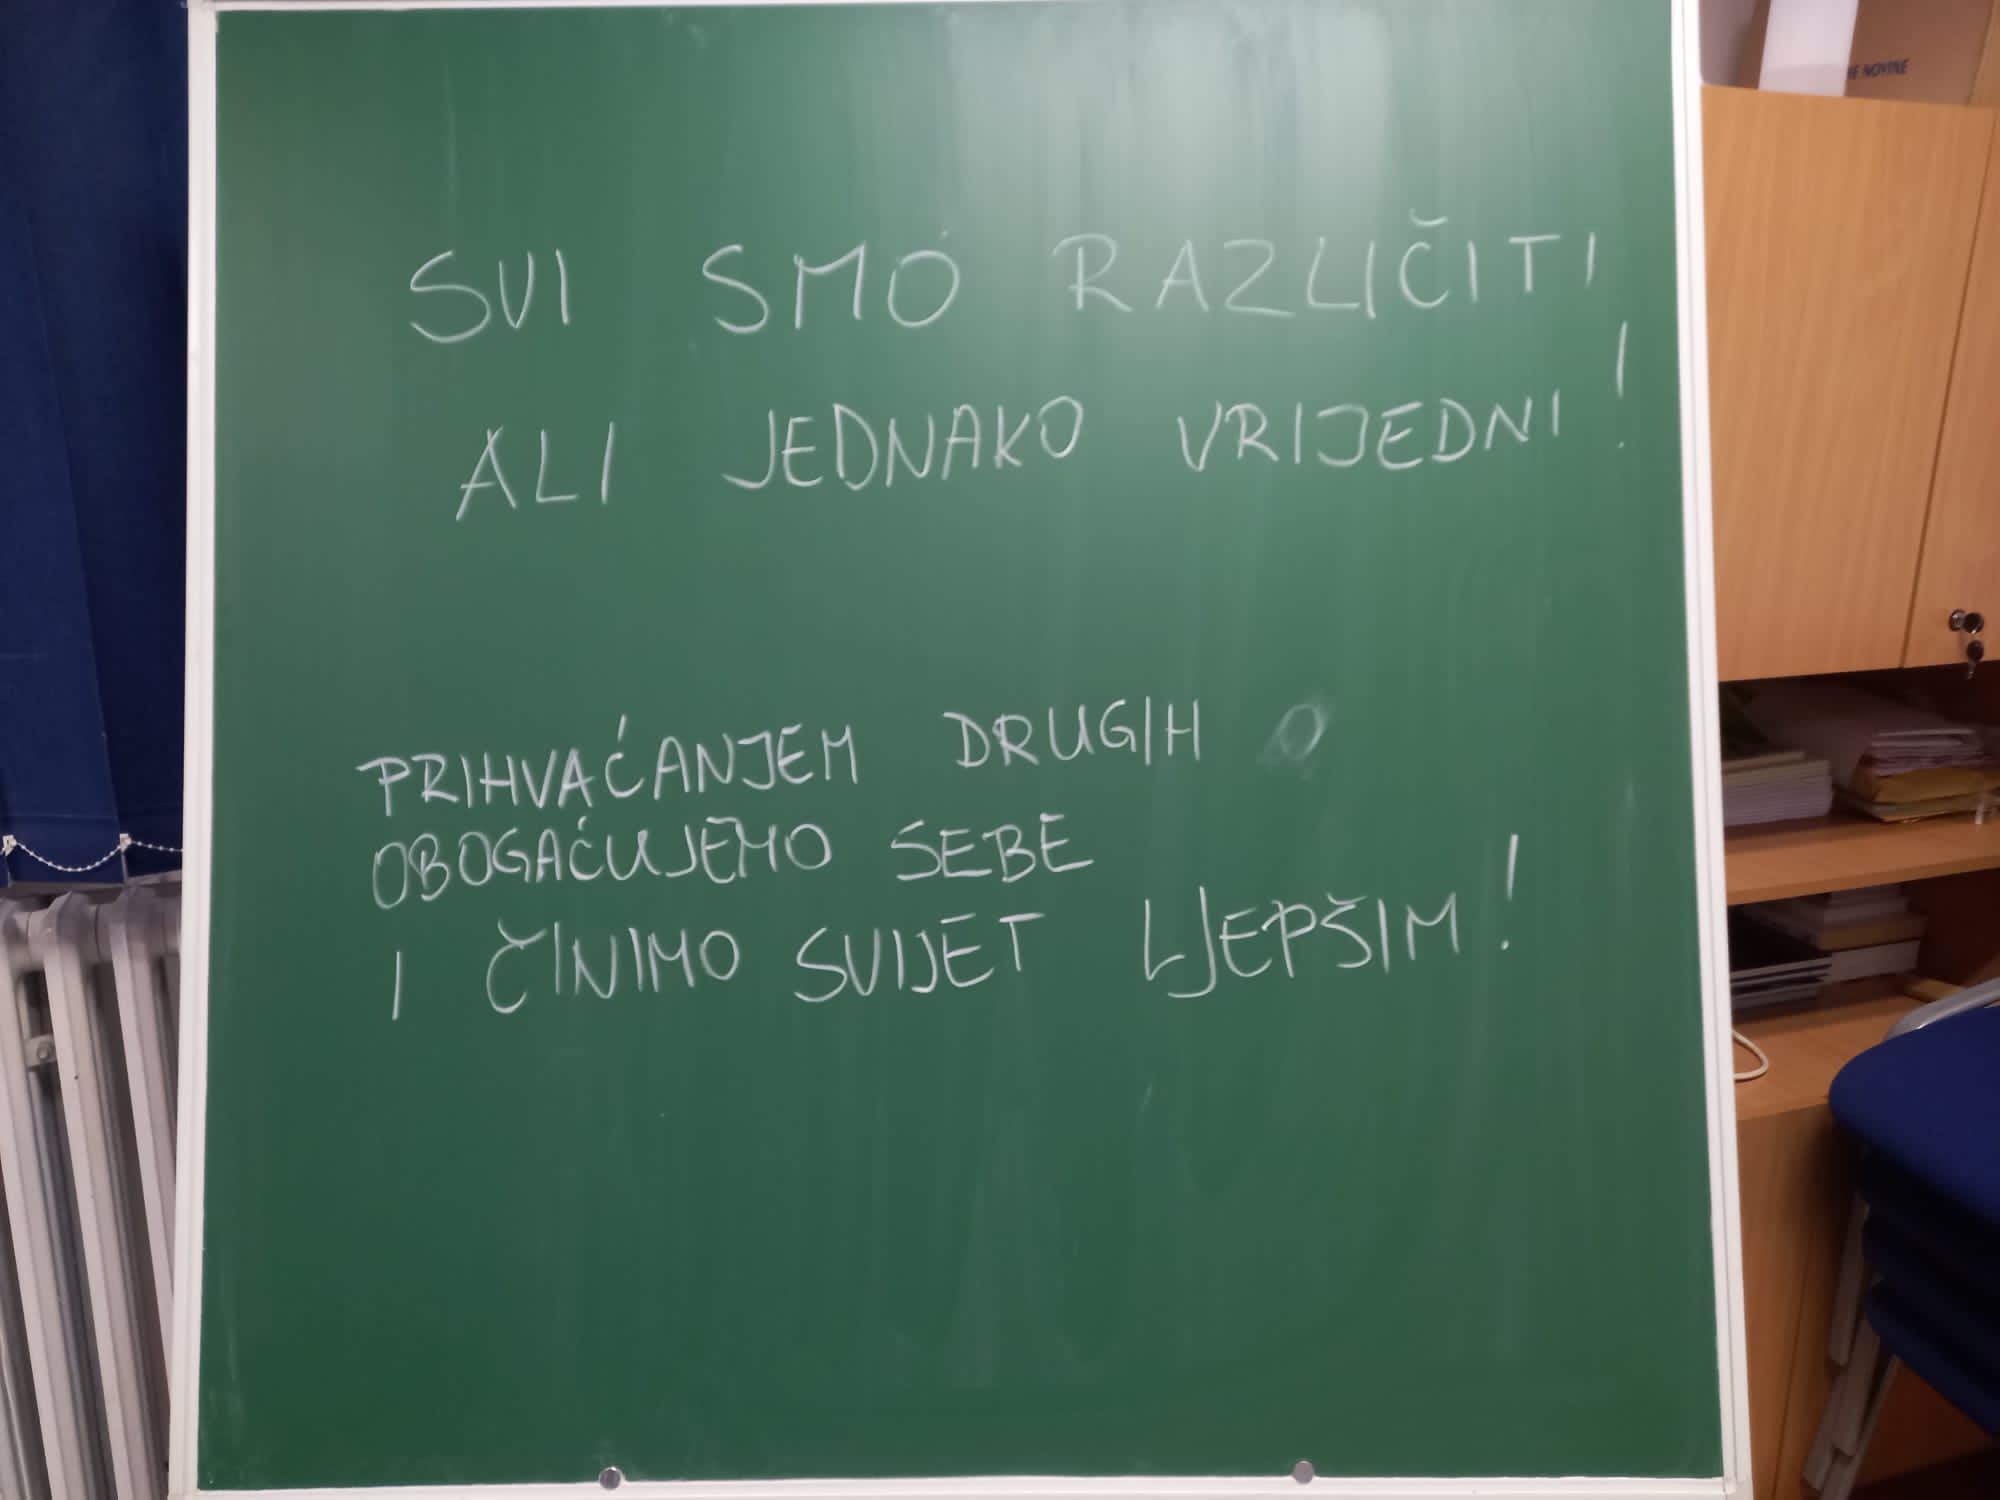 NE NOVINE
SVI SMO RAZLIČITI
ALI JEDNAKO VRIJEDNI!
PRIHVAĆANJEM DRUGIH
OBOGAĆUJEMO SEBE
I ČINIMO SVIJET LJEPŠIM!